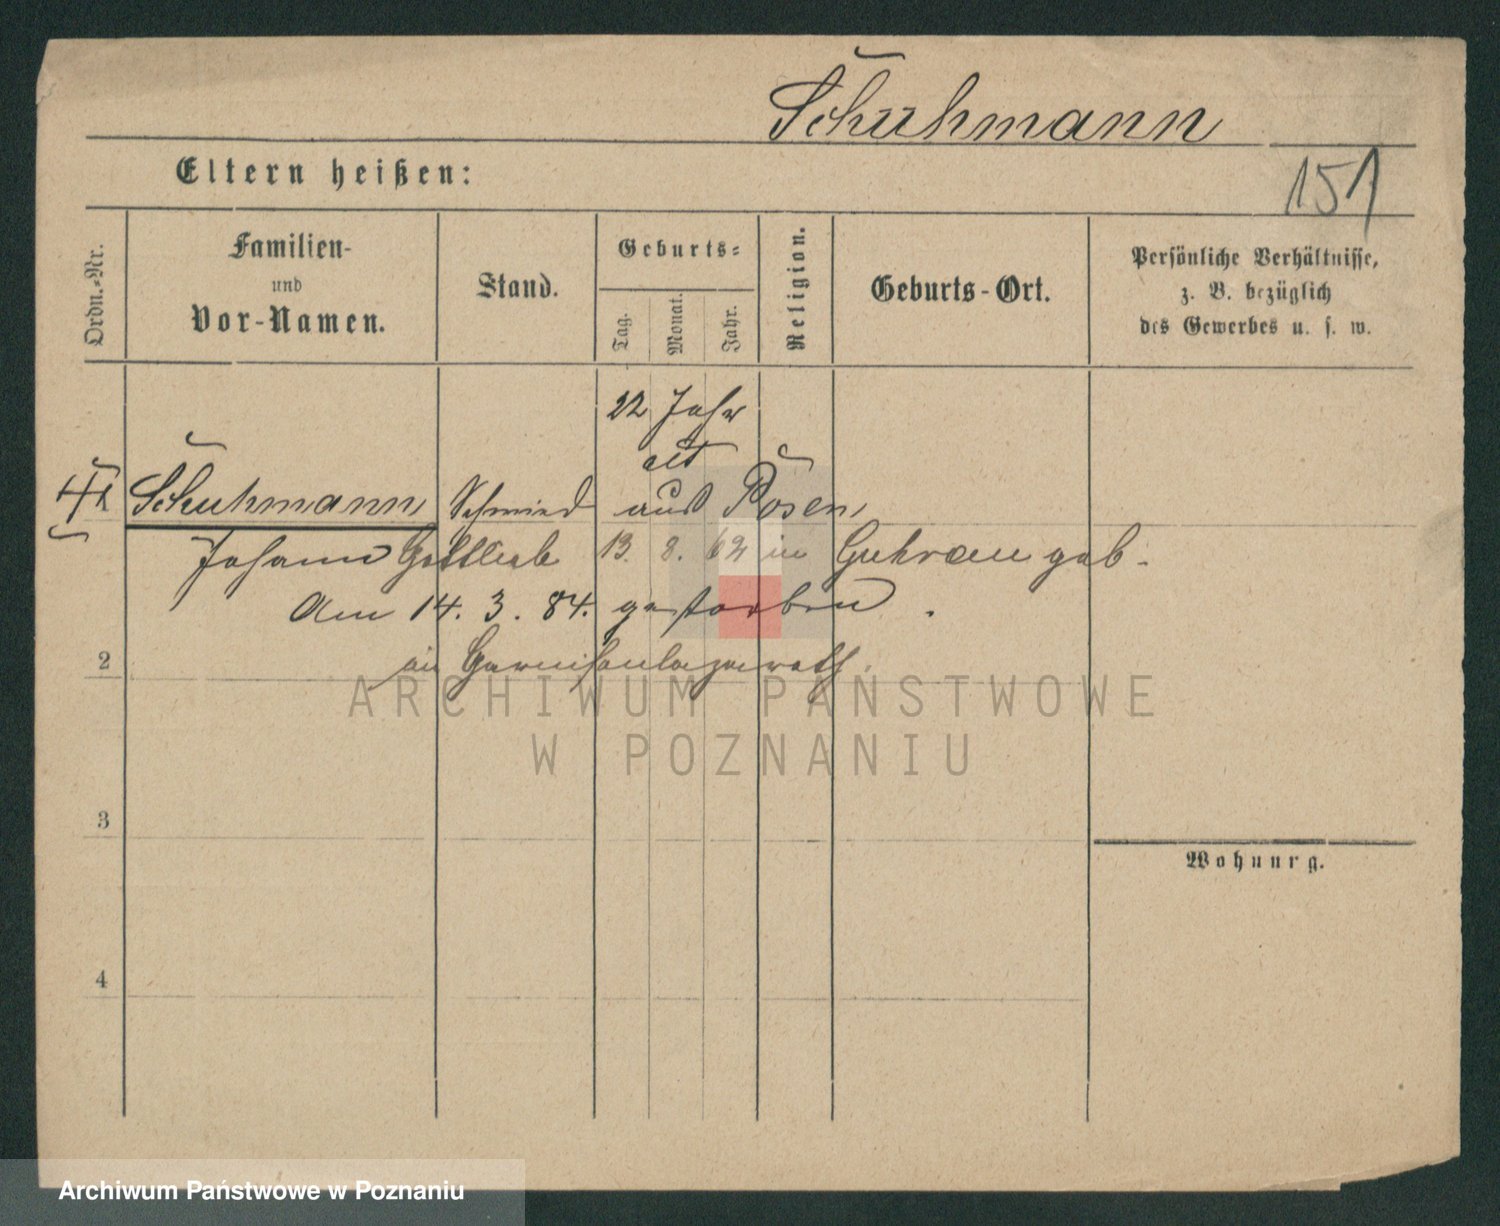 Schuhmann
Eltern heißen:
151
Ordn.-Nr.
Familien-
und
Vor-Namen.
Stand.
Geburts-
Tag.
Monat.
Jahr.
Religion.
Geburts-Ort.
Persönliche Verhältnisse,
z. B. bezüglich
des Gewerbes u. s. w.
22 Jahr
alt
Schuhmann Schmied aus Posen,
Johann Gottlieb 13. 8. 62 in Guhrau geb.
Am 14. 3. 84. gestorben.
im Garnisonlazareth.
2
ARCHIWUM PAŃSTWOWE
W POZNANIU
3
Wohnung.
4
Archiwum Państwowe w Poznaniu